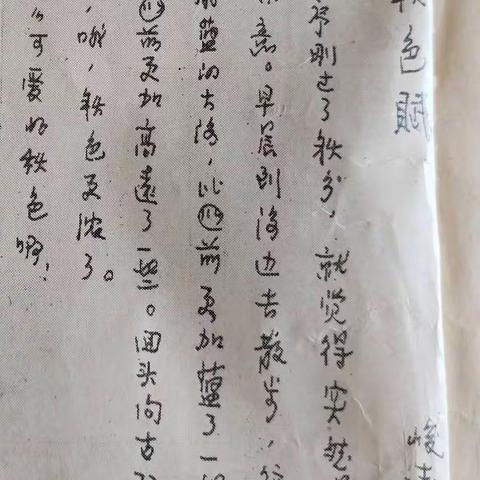 秋色赋
峻青
序刚过了秋分，就觉得突然
意。早晨到海边去散步，
蓝的大海，比前更加蓝了一
前更加高远了一些。回头向古
哦，秋色更浓了。
可爱的秋色啊！